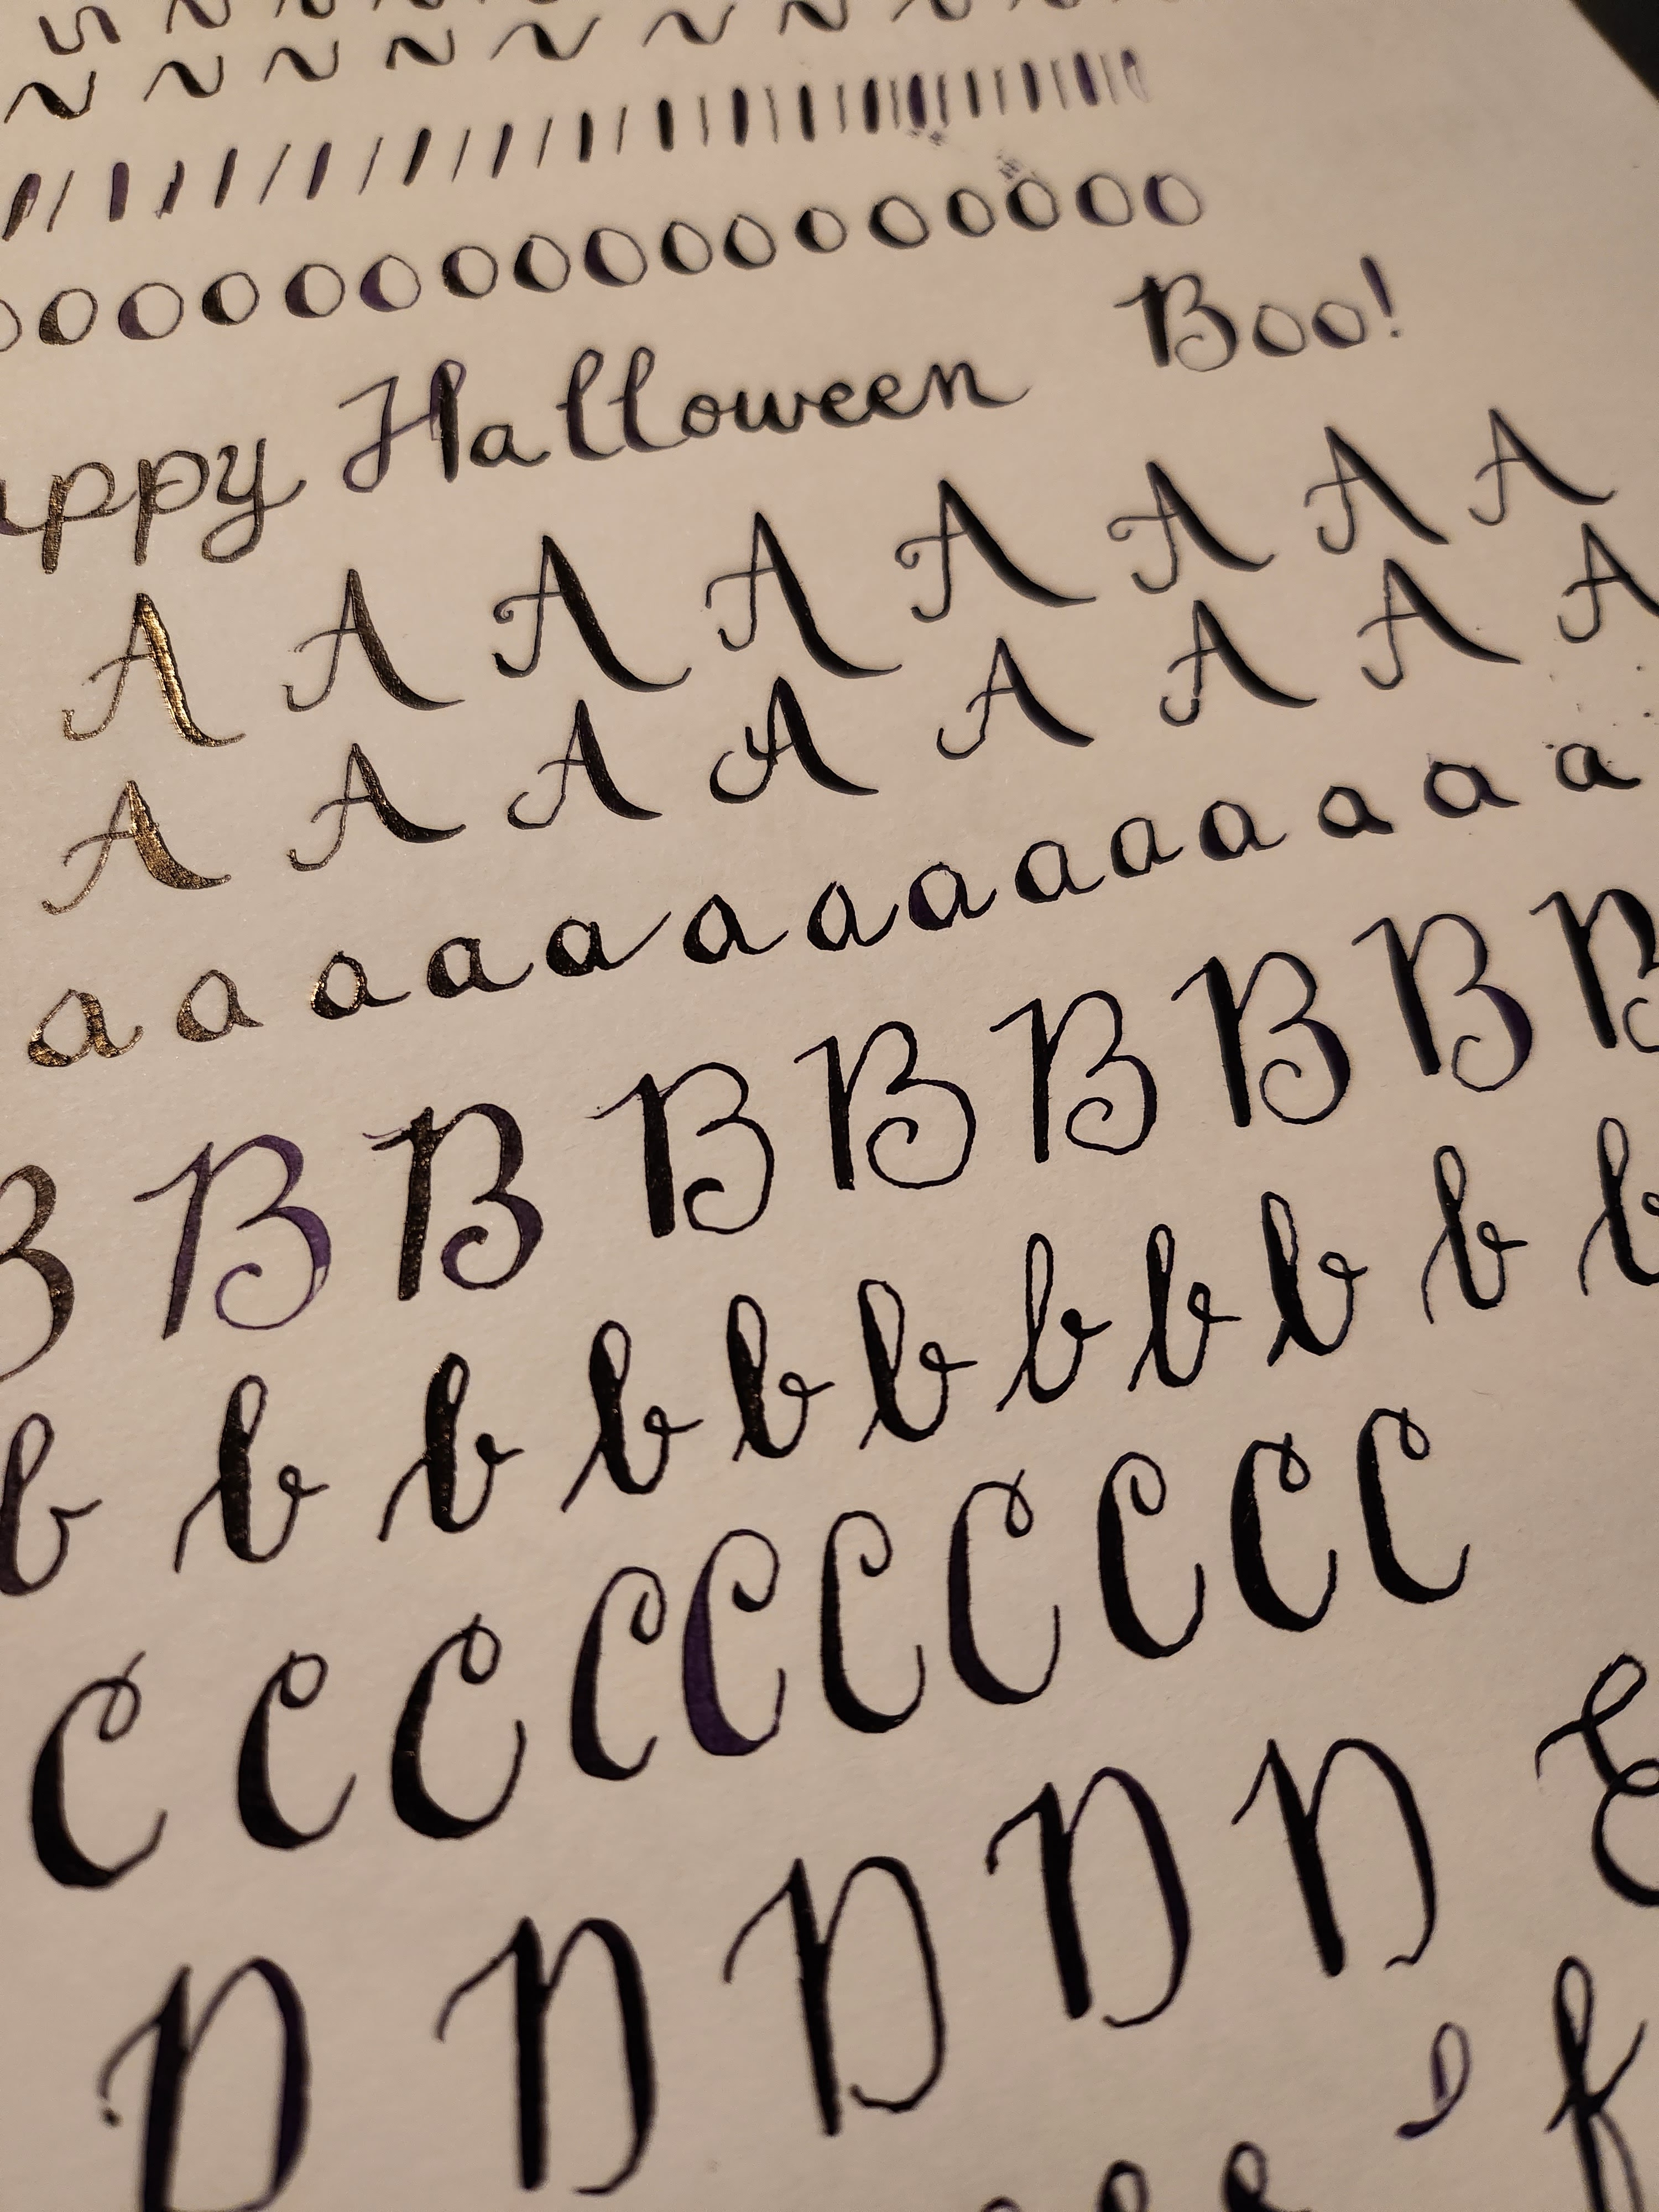 O O O O O O O O O O O O O O O O O
appy Halloween Boo!
A A A A A A A A
A A A A A A A A
a a a a a a a a a a a a a a
B B B B B B B B B
b b b b b b b b b b b
C C C C C C C C C C
D D D D D E
D f